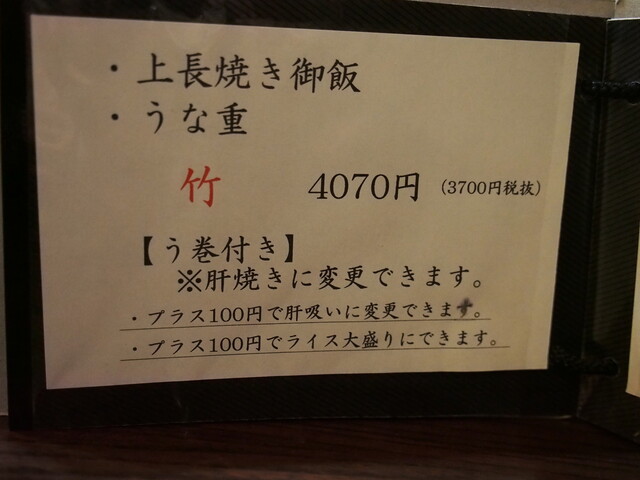 ・上長焼き御飯
・うな重
竹 4070円 (3700円税抜)
【う巻付き】
※肝焼きに変更できます。
・プラス100円で肝吸いに変更できます。
・プラス100円でライス大盛りにできます。